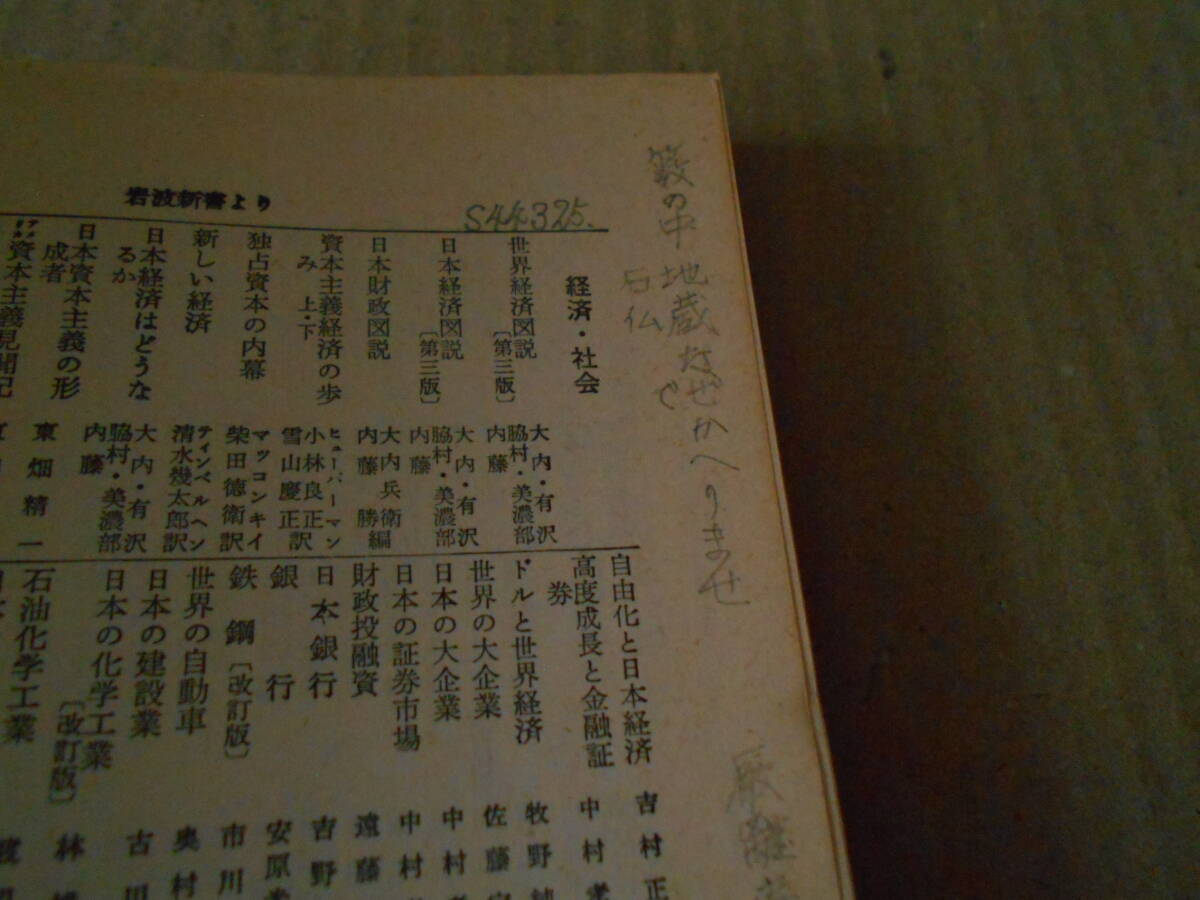 籔の中地蔵なぜかへりませ
石仏
岩波新書より
S44325.
経済・社会
世界経済図説〔第三版〕
大内・有沢
脇村・美濃部
内藤
日本経済図説〔第三版〕
大内・有沢
脇村・美濃部
内藤
日本財政図説
大内兵衛編
内藤勝
資本主義経済の歩み 上・下
ヒューバーマン
小林良正訳
雪山慶正訳
独占資本の内幕
マッコンキイ
柴田徳衛訳
新しい経済
ティンベルヘン
清水幾太郎訳
日本経済はどうなるか
大内・有沢
脇村・美濃部
内藤
日本資本主義の形成者
東畑精一
資本主義見聞記
自由化と日本経済
吉村正
高度成長と金融証券
中村孝
ドルと世界経済
牧野純
世界の大企業
佐藤定
日本の大企業
中村
日本の証券市場
中村
財政投融資
遠藤
日本銀行
吉野
銀行
安原
鉄鋼〔改訂版〕
市川
世界の自動車
奥村
日本の建設業
古川
日本の化学工業〔改訂版〕
林
石油化学工業
渡